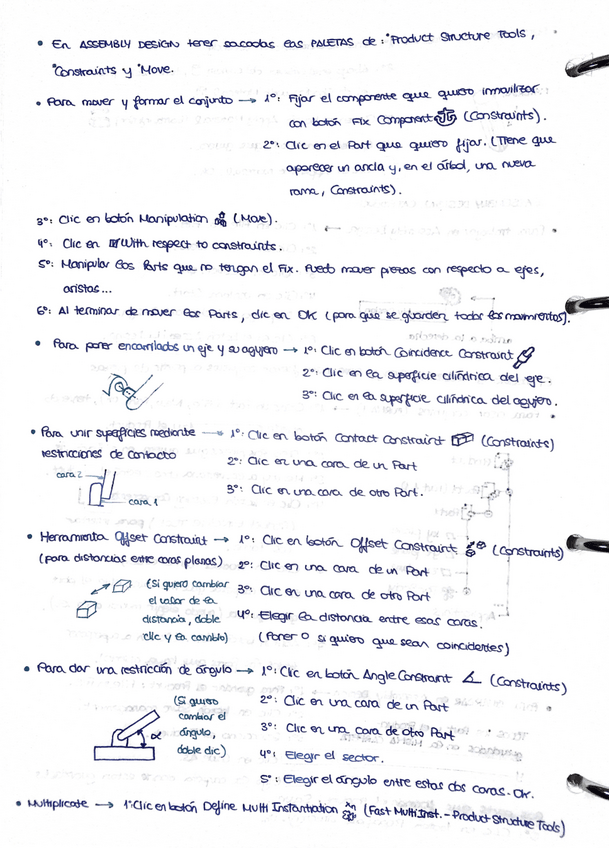 • En ASSEMBLY DESIGN tener sacadas las PALETAS de: "Product Structure Tools,
"Constraints y "Move.
• Para mover y formar el conjunto → 1º: Fijar el componente que quiero inmovilizar
con botón Fix Component (Constraints).
2º: Clic en el Part que quiero fijar. (Tiene que
aparecer un ancla y, en el árbol, una nueva
rama, Constraints).
3º: Clic en botón Manipulation (Move).
4º: Clic en ☑With respect to constraints.
5º: Manipular los Parts que no tengan el Fix. Puedo mover piezas con respecto a ejes,
aristas...
6º: Al terminar de mover los Parts, clic en OK (para que se guarden todos los movimientos).
• Para poner encarrilados un eje y su agujero → 1º: Clic en botón Coincidence Constraint
2º: Clic en la superficie cilíndrica del eje.
3º: Clic en la superficie cilíndrica del agujero.
• Para unir superficies mediante → 1º: Clic en botón Contact Constraint (Constraints)
restricciones de contacto
2º: Clic en una cara de un Part
cara 2
3º: Clic en una cara de otro Part.
cara 1
• Herramienta Offset Constraint → 1º: Clic en botón Offset Constraint (Constraints)
(para distancias entre caras planas) 2º: Clic en una cara de un Part
(Si quiero cambiar 3º: Clic en una cara de otro Part
el valor de la
distancia, doble 4º: Elegir la distancia entre esas caras.
clic y la cambio) (Poner 0 si quiero que sean coincidentes)
• Para dar una restricción de ángulo → 1º: Clic en botón Angle Constraint (Constraints)
(Si quiero 2º: Clic en una cara de un Part
cambiar el 3º: Clic en una cara de otro Part
α ángulo,
doble clic) 4º: Elegir el sector.
5º: Elegir el ángulo entre estas dos caras. OK.
• Multiplicate → 1º Clic en botón Define Multi Instantiation (Fast Multi Inst. - Product Structure Tools)